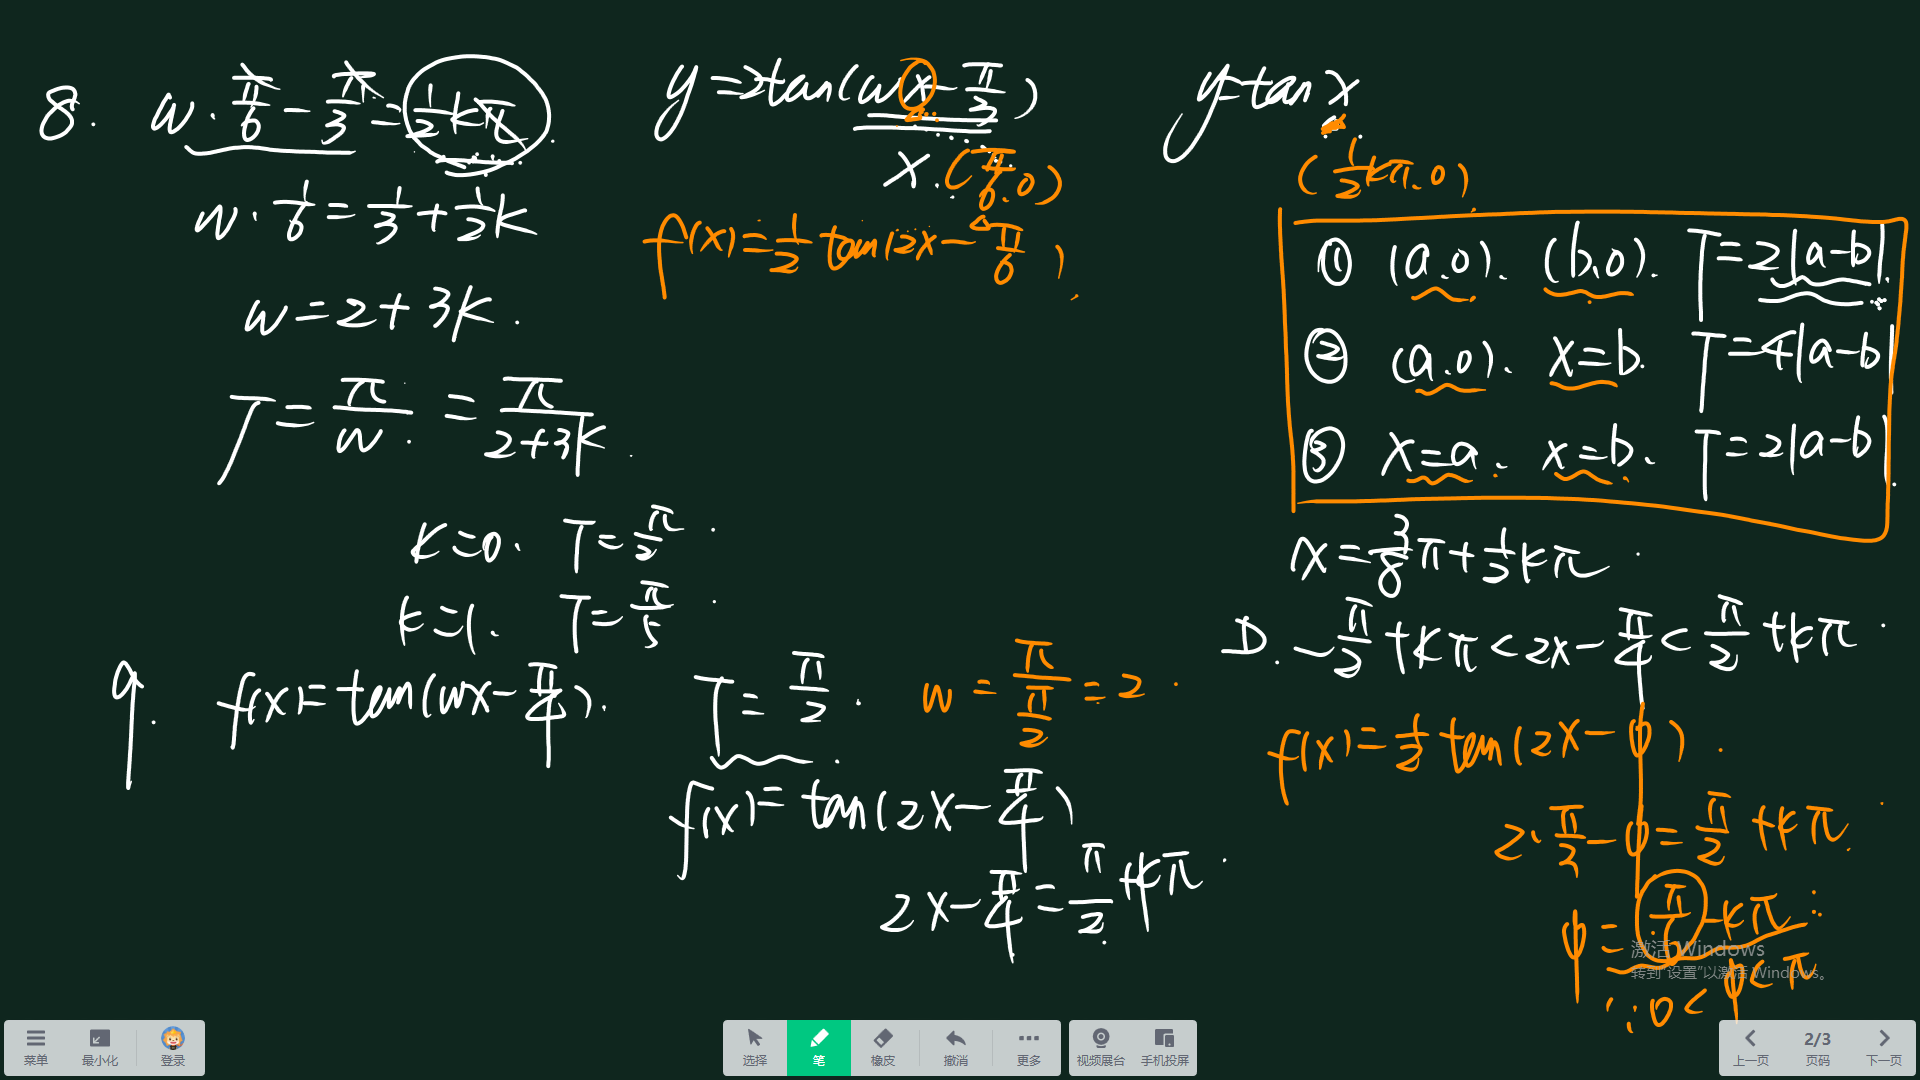 8. w·π/6 - π/3 = 1/2kπ
w·1/6 = 1/3 + 1/2k
w = 2 + 3k.
T = π/w = π/(2+3k).
k=0. T = π/2.
k=1. T = π/5
y = 2tan(wx - π/3)
x. (π/6.0)
f(x) = 1/2 tan(2x - π/6).
y = tan x
(1/2kπ.0)
① (a.0). (b.0). T = 2|a-b|.
② (a.0). x=b. T = 4|a-b|
③ x=a. x=b. T = 2|a-b|.
9. f(x) = tan(wx - π/4). T = π/2. w = π/(π/2) = 2.
f(x) = tan(2x - π/4)
2x - π/4 = π/2 + kπ.
x = 3/8π + 1/2kπ.
D. -π/2 + kπ < 2x - π/4 < π/2 + kπ.
f(x) = 1/2 tan(2x - φ).
2·π/3 - φ = π/2 + kπ.
φ = π/6 - kπ
∵ 0 < φ < π
激活 Windows
转到"设置"以激活 Windows。
菜单 最小化 登录
选择 笔 橡皮 撤消 更多
视频展台 手机投屏
上一页 2/3 页码 下一页